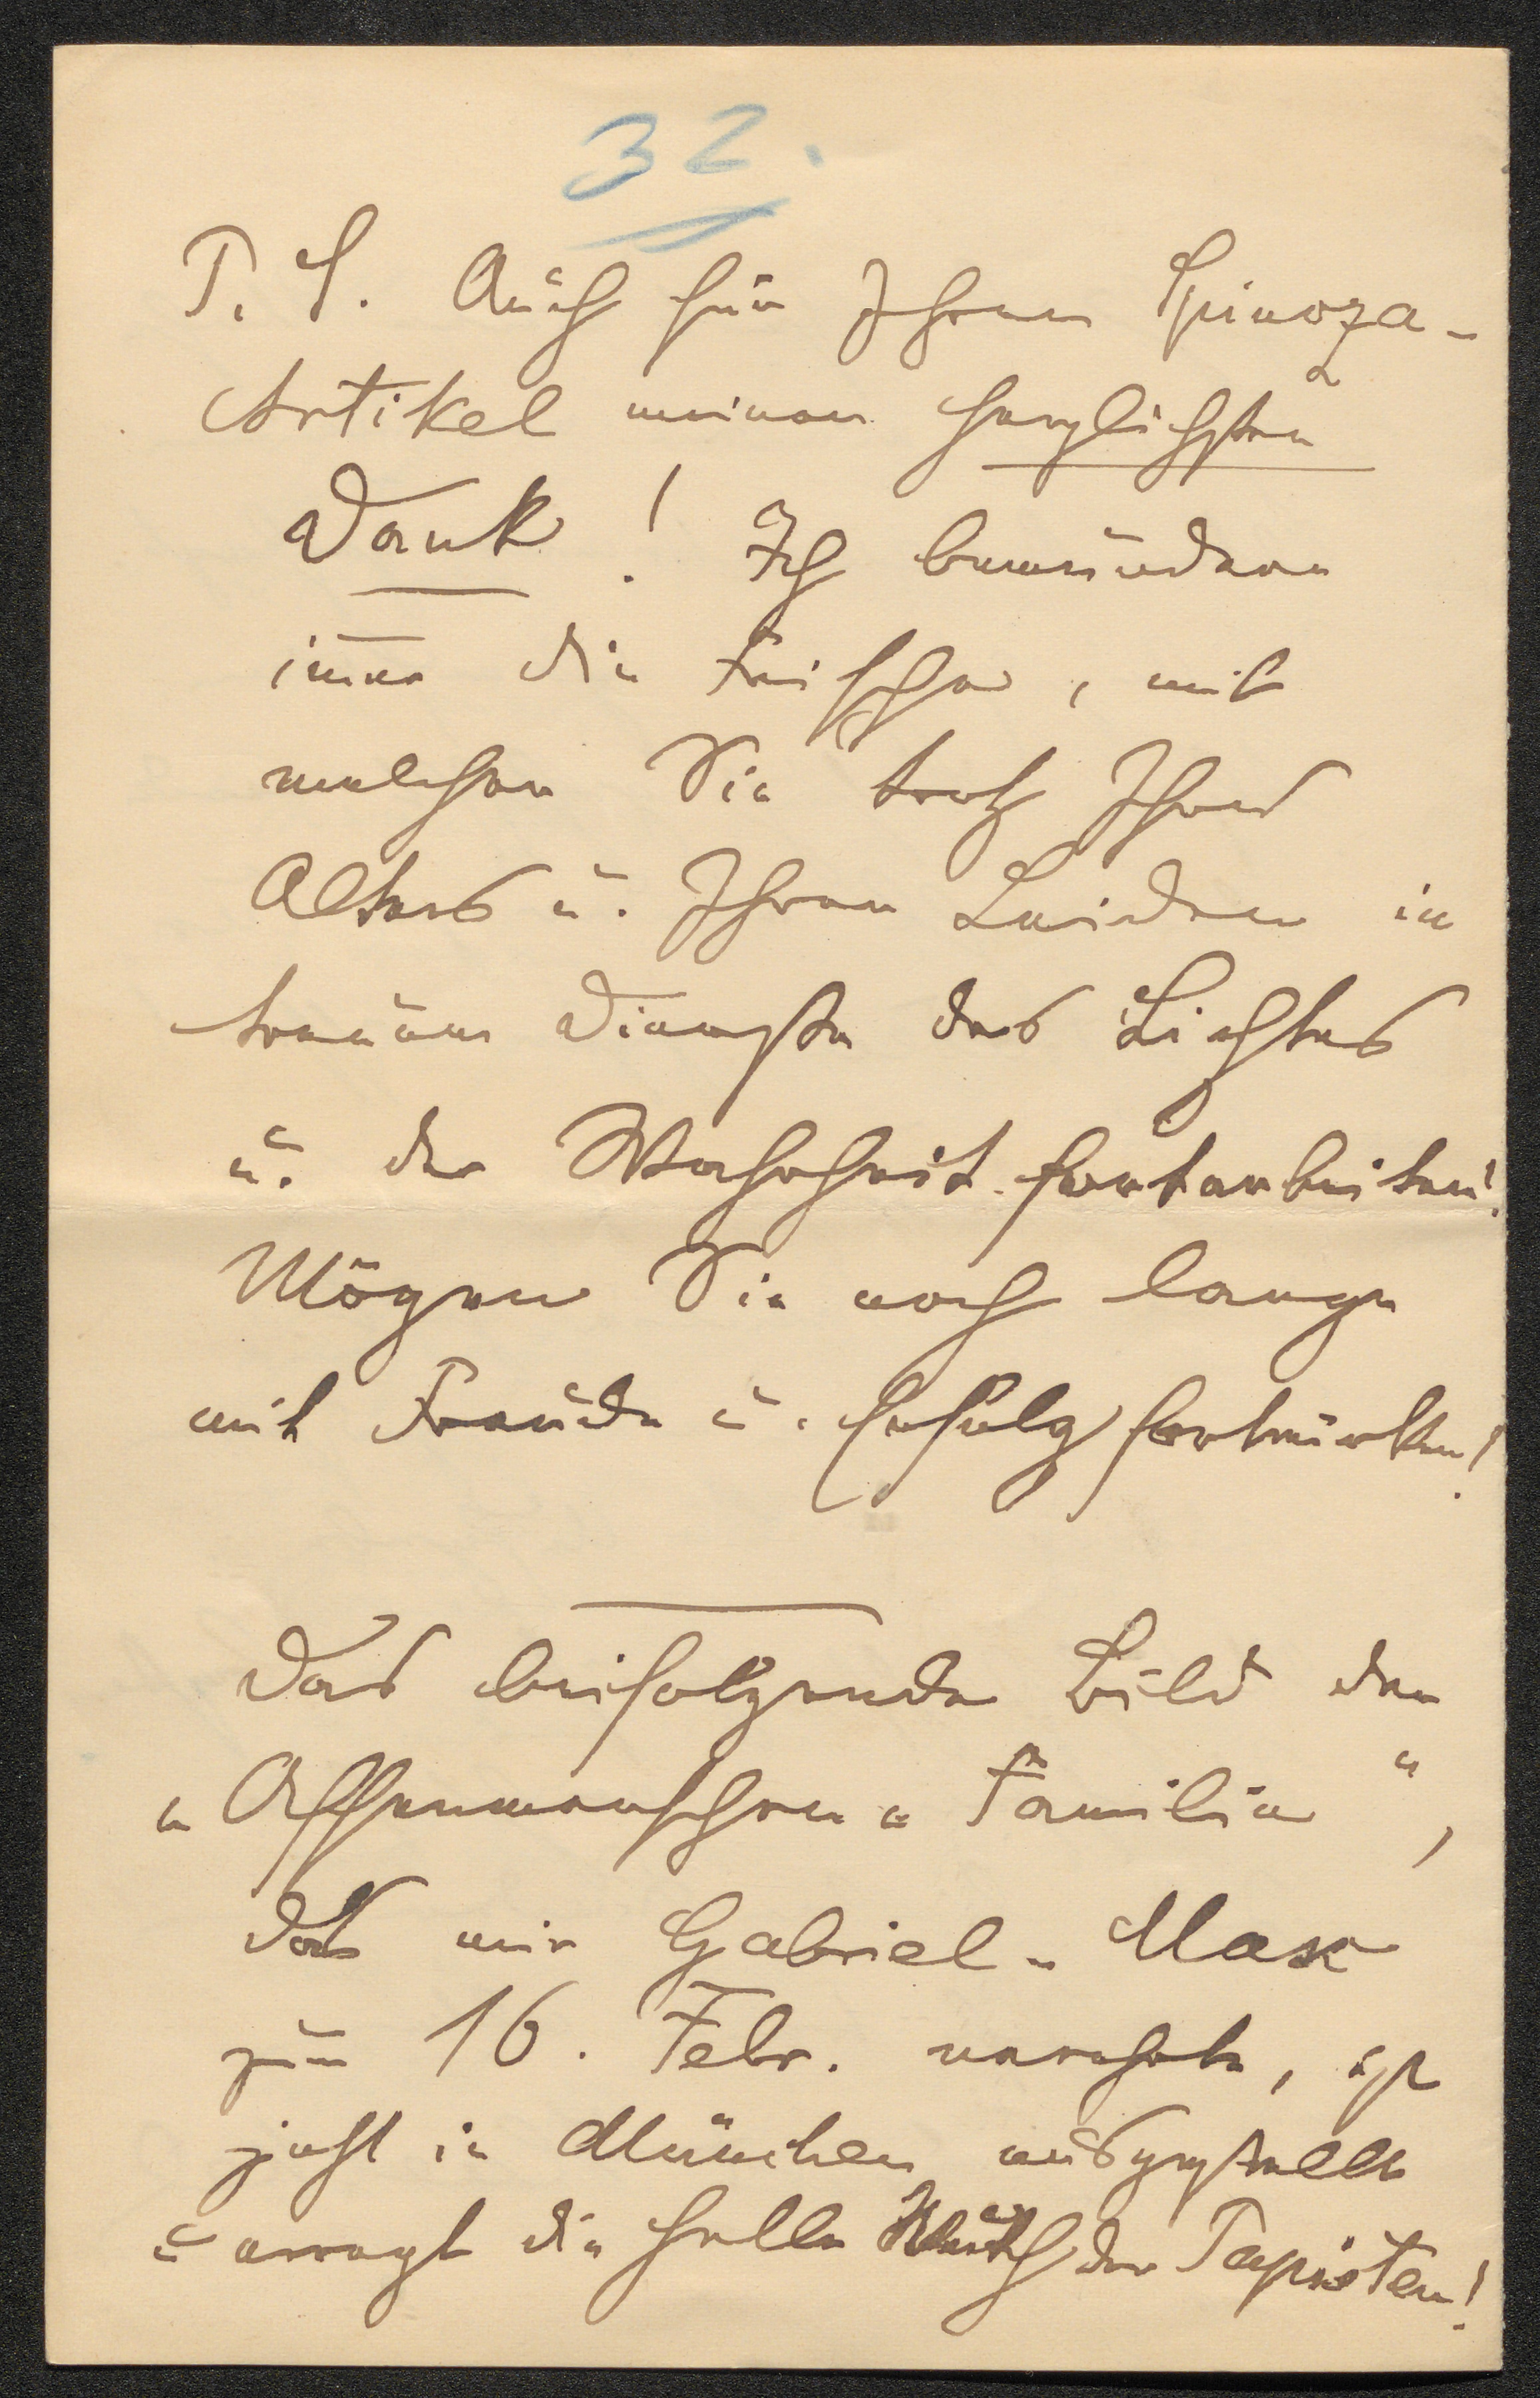 32.
P. S. Auch für Ihren Spinoza-
Artikel meinen herzlichsten
Dank! Ich bewundere
immer die Frische, mit
welcher Sie trotz Ihres
Alters u. Ihrer Leiden im
treuen Dienste des Lichtes
u. der Wahrheit fortarbeiten!
Mögen Sie noch lange
mit Freude u. Erfolg fortwirken!
Das beifolgende Bild der
„Affenmenschen-Familie“,
das mir Gabriel-Max
zum 16. Febr. verehrte, ist
jetzt in München ausgestellt
u erregt die helle Wuth der Papisten!